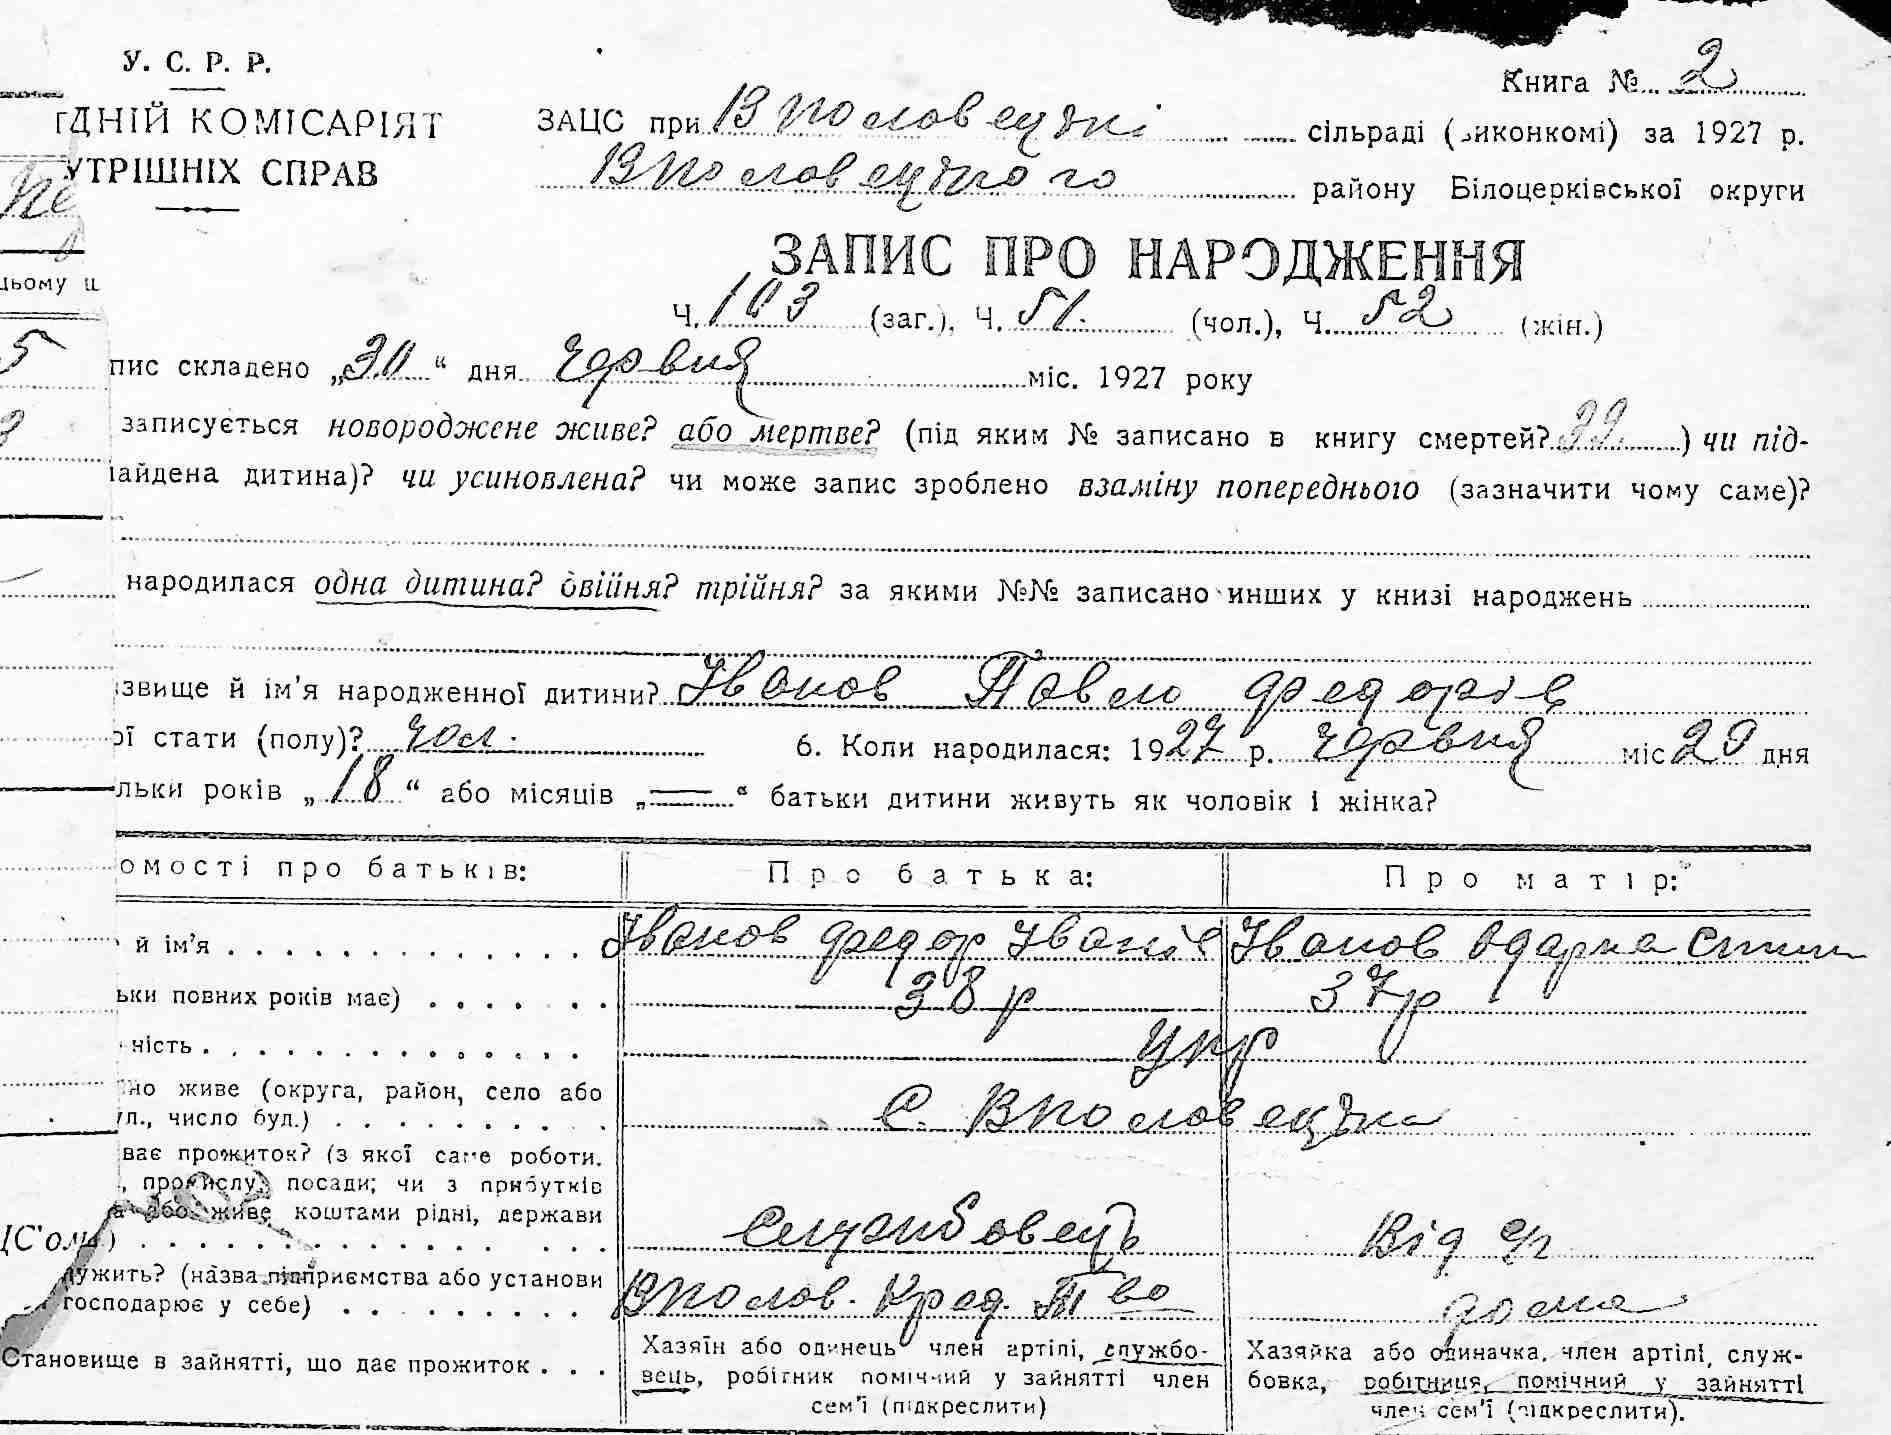 У. С. Р. Р.
ДНІЙ КОМІСАРІЯТ
УТРІШНІХ СПРАВ
Книга № 2
ЗАЦС при Вполовецькі сільраді (виконкомі) за 1927 р.
Вполовецького району Білоцерківської округи
ЗАПИС ПРО НАРОДЖЕННЯ
Ч. 103 (заг.), Ч. 51. (чол.), Ч. 52 (жін.)
пис складено „30“ дня Червня міс. 1927 року
записується новороджене живе? або мертве? (під яким № записано в книгу смертей? ) чи під-
айдена дитина)? чи усиновлена? чи може запис зроблено взаміну попереднього (зазначити чому саме)?
народилася одна дитина? двійня? трійня? за якими №№ записано инших у книзі народжень
звище й ім'я народженної дитини? Іванов Павло Федорів
ої стати (полу)? чол. 6. Коли народилася: 1927 р. Червня міс 20 дня
льки років „18“ або місяців „—“ батьки дитини живуть як чоловік і жінка?
омості про батьків: Про батька: Про матір:
й ім'я Іванов Федор Іванів Іванов Одарка
ьки повних років має) 38 р 37 р
ність укр
но живе (округа, район, село або
ул., число буд.) С. Вполовецька
ває прожиток? (з якої саме роботи,
, промислу, посади; чи з прибутків
або живе коштами рідні, держави
Службовець Від с/г
ужить? (назва підприємства або установи
господарює у себе) Вполов. Кред. Т-во дома
Становище в зайнятті, що дає прожиток
Хазяїн або одинець член артілі, службо-
вець, робігник помічний у зайнятті член
сем'ї (підкреслити)
Хазяйка або одиначка, член артілі, служ-
бовка, робітниця, помічний у зайнятті
член сем'ї (підкреслити).